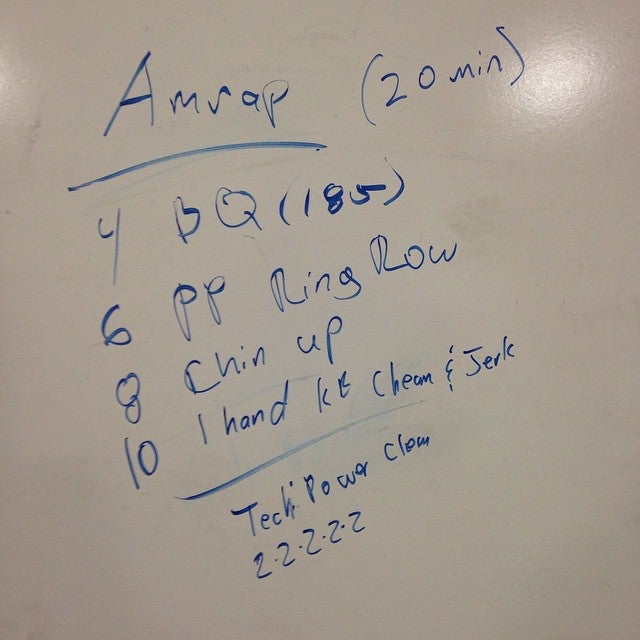 Amrap (20 min)
4 BQ (185)
6 PP Ring Row
8 Chin up
10 1 hand Clean & Jerk
Tech: Power Clean
2-2-2-2-2